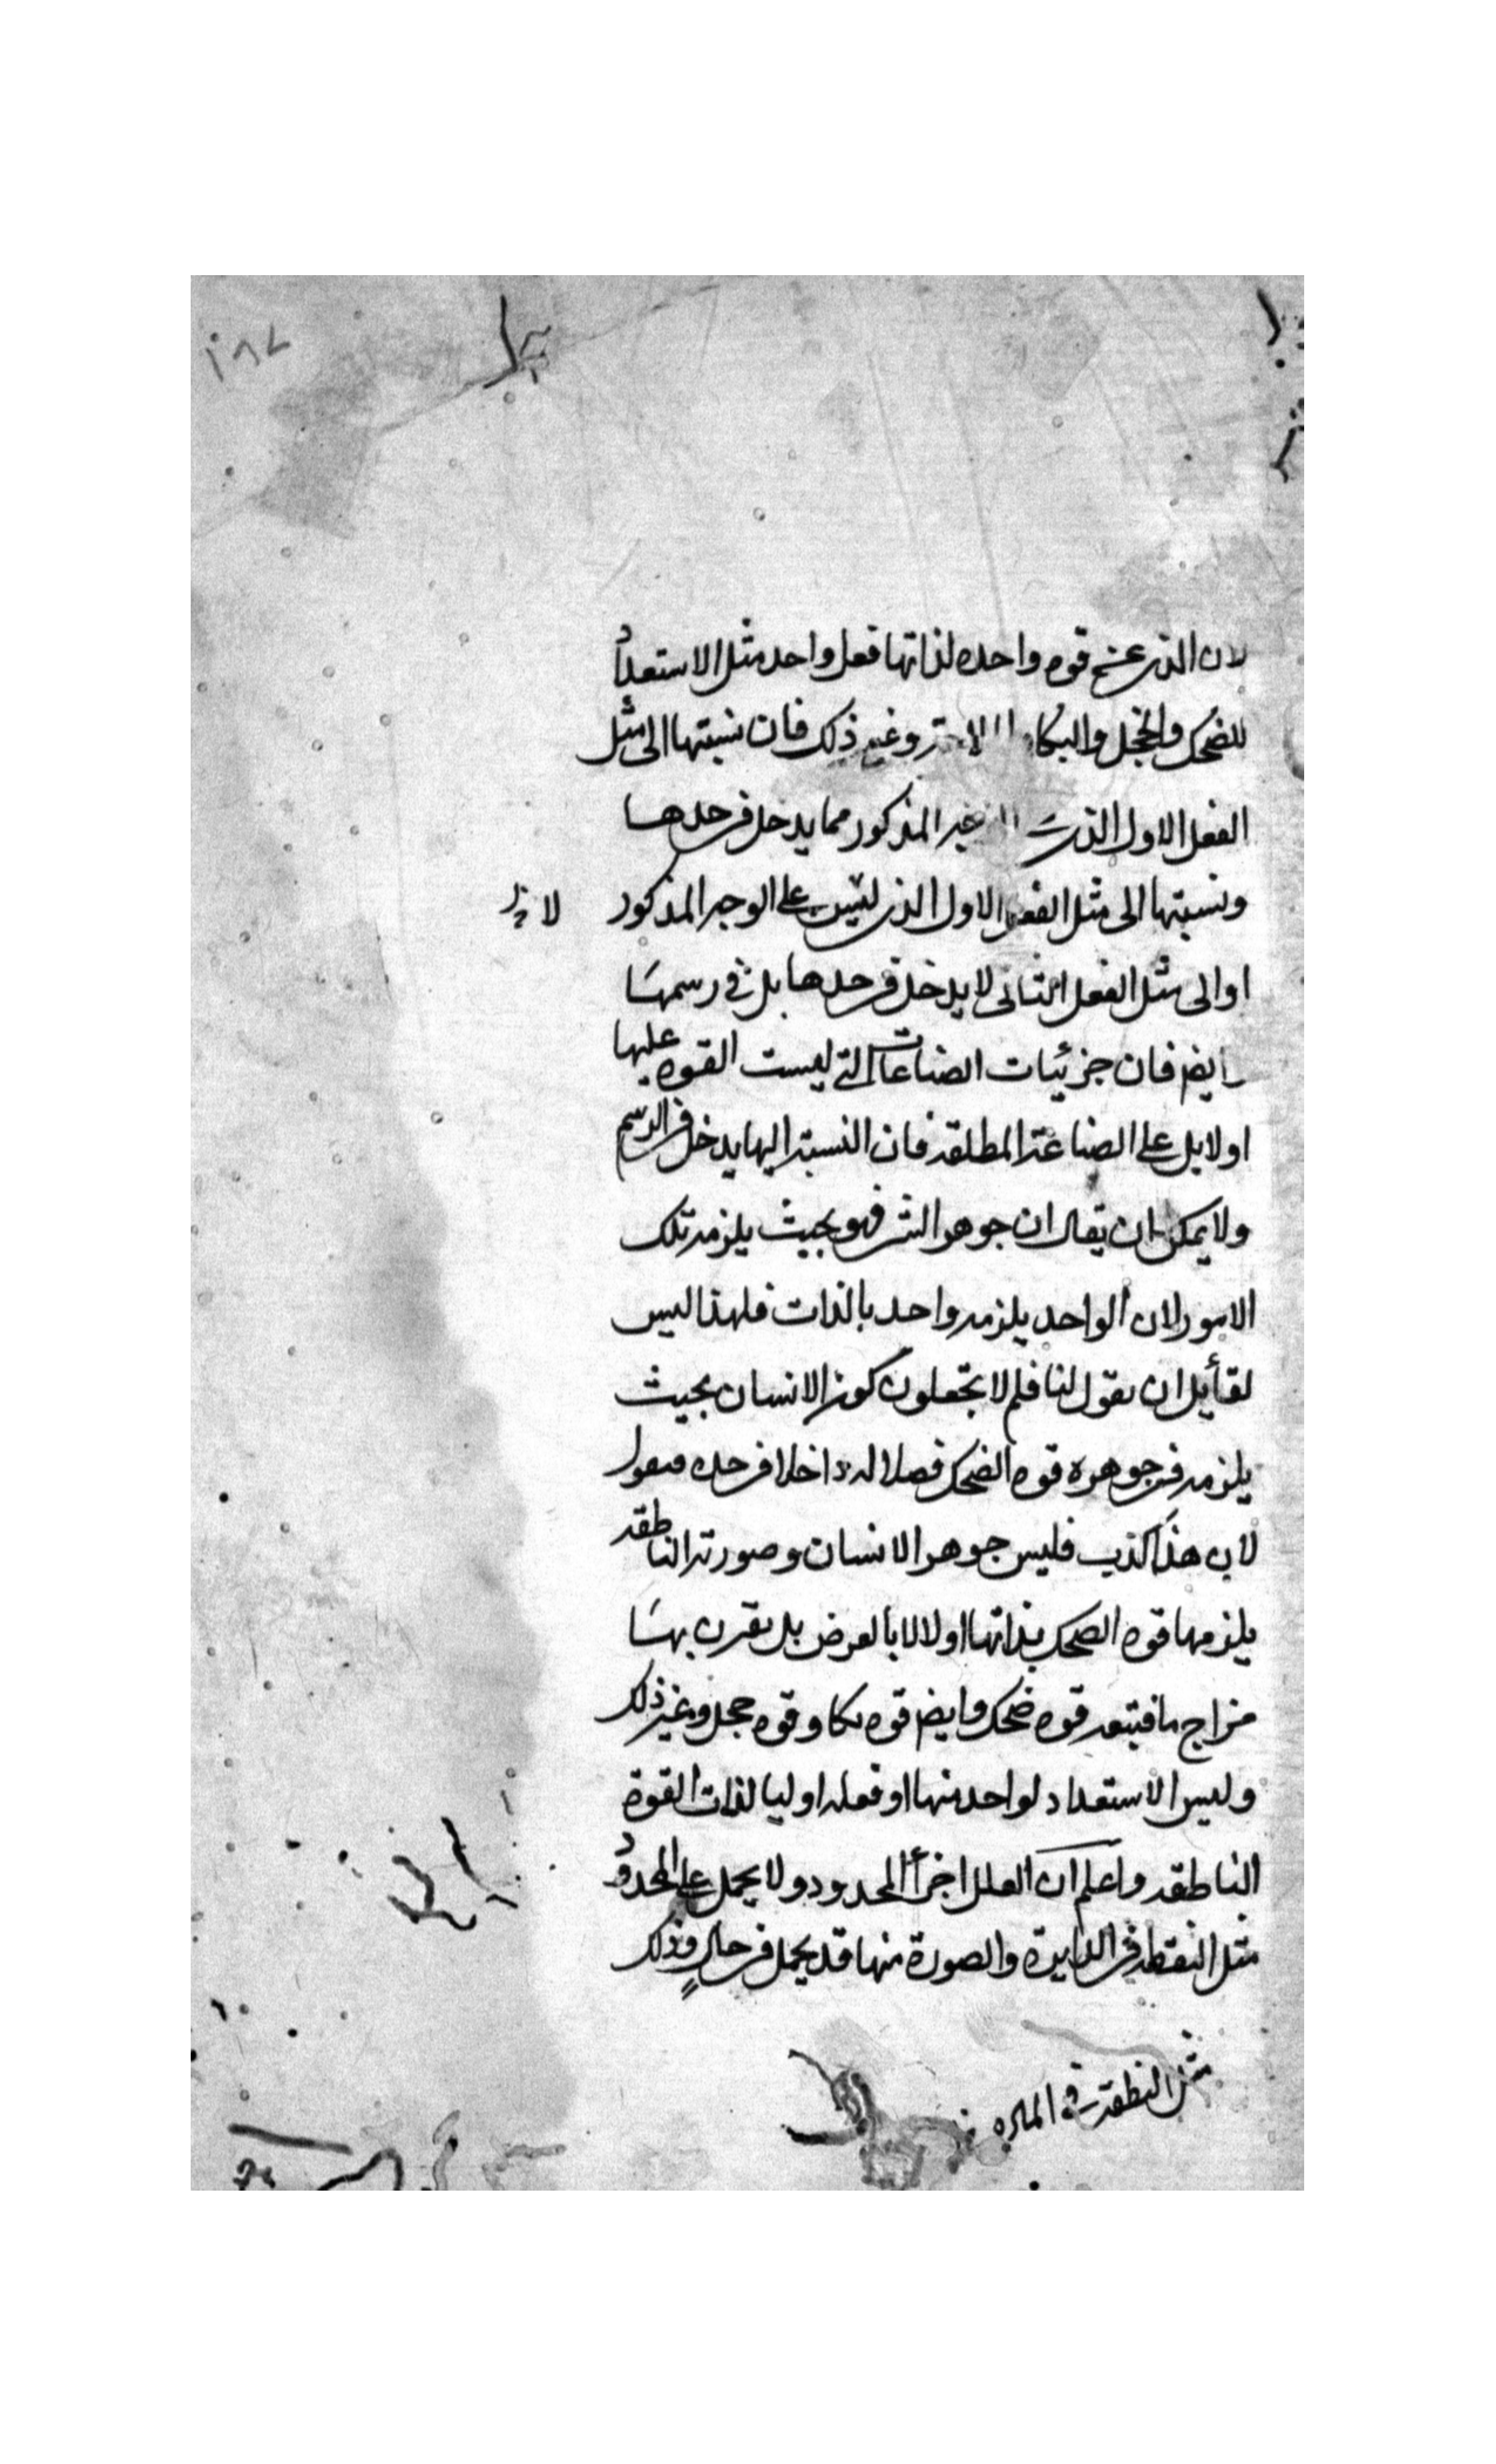 ١٨٧
لان الذى عنه قوه واحده لذاتها فعل واحد مثل الاستعداد
للضحك والخجل والبكاء وغير ذلك فان نسبتها الى مثل
الفعل الاول الذى غير المذكور مما يدخل فى حدها
ونسبتها الى مثل الفعل الاول الذى ليس على الوجه المذكور
او الى مثل الفعل الثانى لا يدخل فى حدها بل فى رسمها
وايضا فان جزئيات الصناعات التى ليست القوه عليها
اولا بل على الصناعة المطلقه فان النسبه اليها يدخل فى الرسم
ولا يمكن ان يقال ان جوهر الشئ هو بحيث يلزمه تلك
الامور لان الواحد يلزمه واحد بالذات فلهذا ليس
لقائل ان يقول لنا فلم لا تجعلون كون الانسان بحيث
يلزمه فى جوهره قوه الضحك فصلا له داخلا فى حده فنقول
لان هذا كذب فليس جوهر الانسان وصورته الناطقه
يلزمها قوه الضحك بذاتها اولا الا بالعرض بل يقترن بها
مزاج ما فيتبعه قوه ضحك وايضا قوه بكا وقوه خجل وغير ذلك
وليس الاستعداد لواحد منها او فعله اوليا لذات القوة
الناطقه واعلم ان العلل اجزأ المحدود ولا يحمل على المحدود
مثل النقطه فى الدايرة والصورة منها قد يحمل فى حال وذلك
مثل النطقة فى